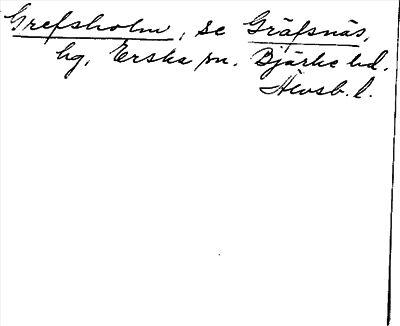 Grefsholm, se Gräfsnäs,
hg, Erska sn. Bjärke hd.
Älvsb. l.